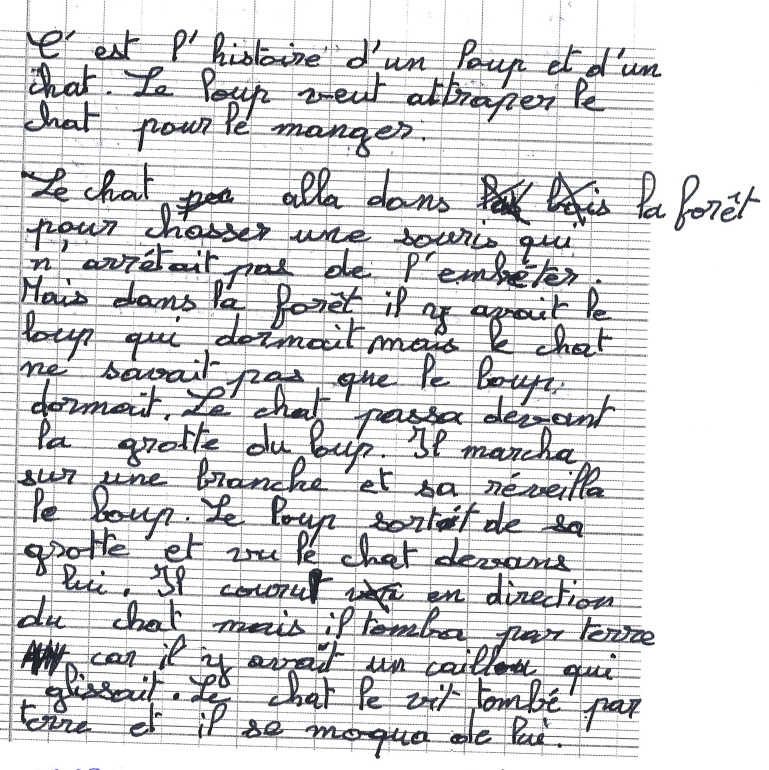 C'est l'histoire d'un loup et d'un
chat. Le loup veut attraper le
chat pour le manger.
Le chat alla dans la forêt
pour chasser une souris qui
n'arrêtait pas de l'embêter.
Mais dans la forêt il y avait le
loup qui dormait mais le chat
ne savait pas que le loup
dormait. Le chat passa devant
la grotte du loup. Il marcha
sur une branche et sa réveilla
le loup. Le loup sortit de sa
grotte et vu le chat devans
lui. Il courut en direction
du chat mais il tomba par terre
car il y avait un caillou qui
glissait. Le chat le vit tombé par
terre et il se moqua de lui.